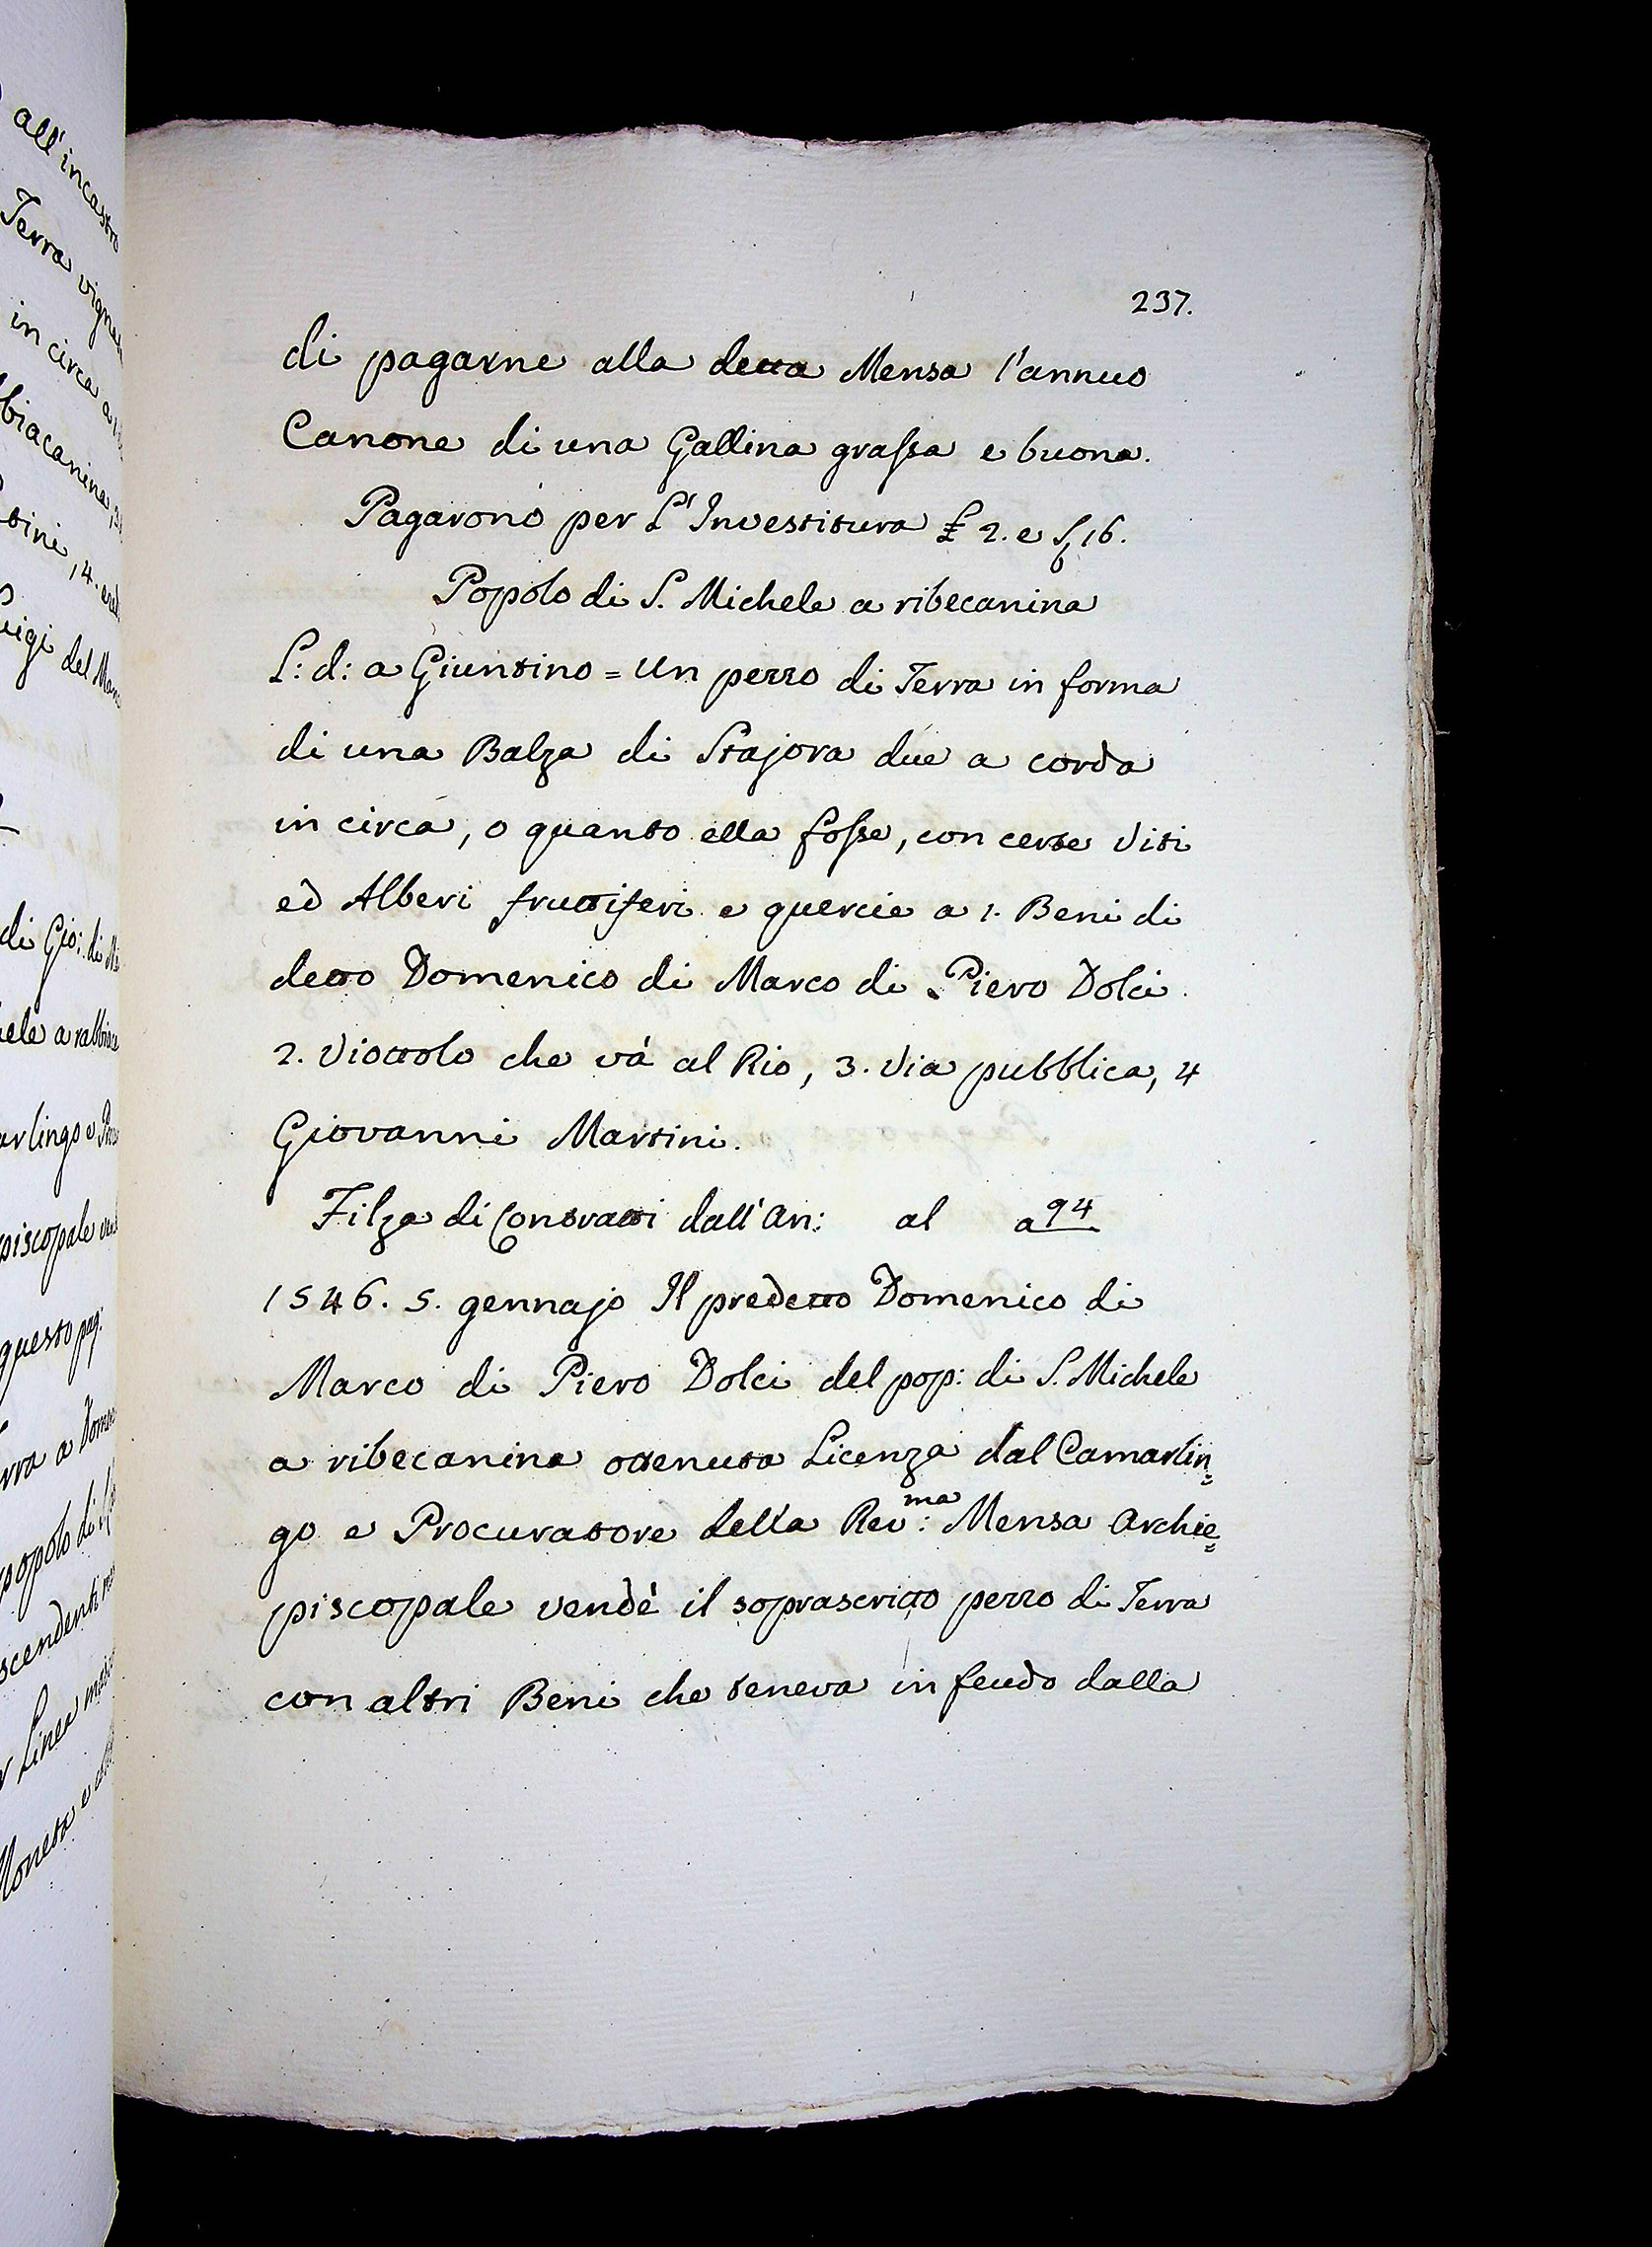 all'incastro
Terra
in circa a
di Gio: di
questo pag:
popolo di
Linea
Moneta e
237.
di pagarne alla detta Mensa l'annuo
Canone di una Gallina grassa e buona.
Pagarono per L'Investitura £ 2. e S, 16.
Popolo di S. Michele a ribecanina
L: d: a Giuntino = Un pezzo di Terra in forma
di una Balza di Stajora due a corda
in circa, o quanto ella fosse, con certe Viti
ed Alberi fruttiferi e quercie a 1. Beni di
detto Domenico di Marco di Piero Dolci
2. Viottolo che và al Rio, 3. Via pubblica, 4
Giovanni Martini.
Filza di Contratti dall'An: al a 94
1546. 5. gennajo Il predetto Domenico di
Marco di Piero Dolci del pop: di S. Michele
a ribecanina ottenuta Licenza dal Camarlin=
go e Procuratore della Rev:ma Mensa Archie=
piscopale vendè il soprascritto pezzo di Terra
con altri Beni che teneva in feudo dalla